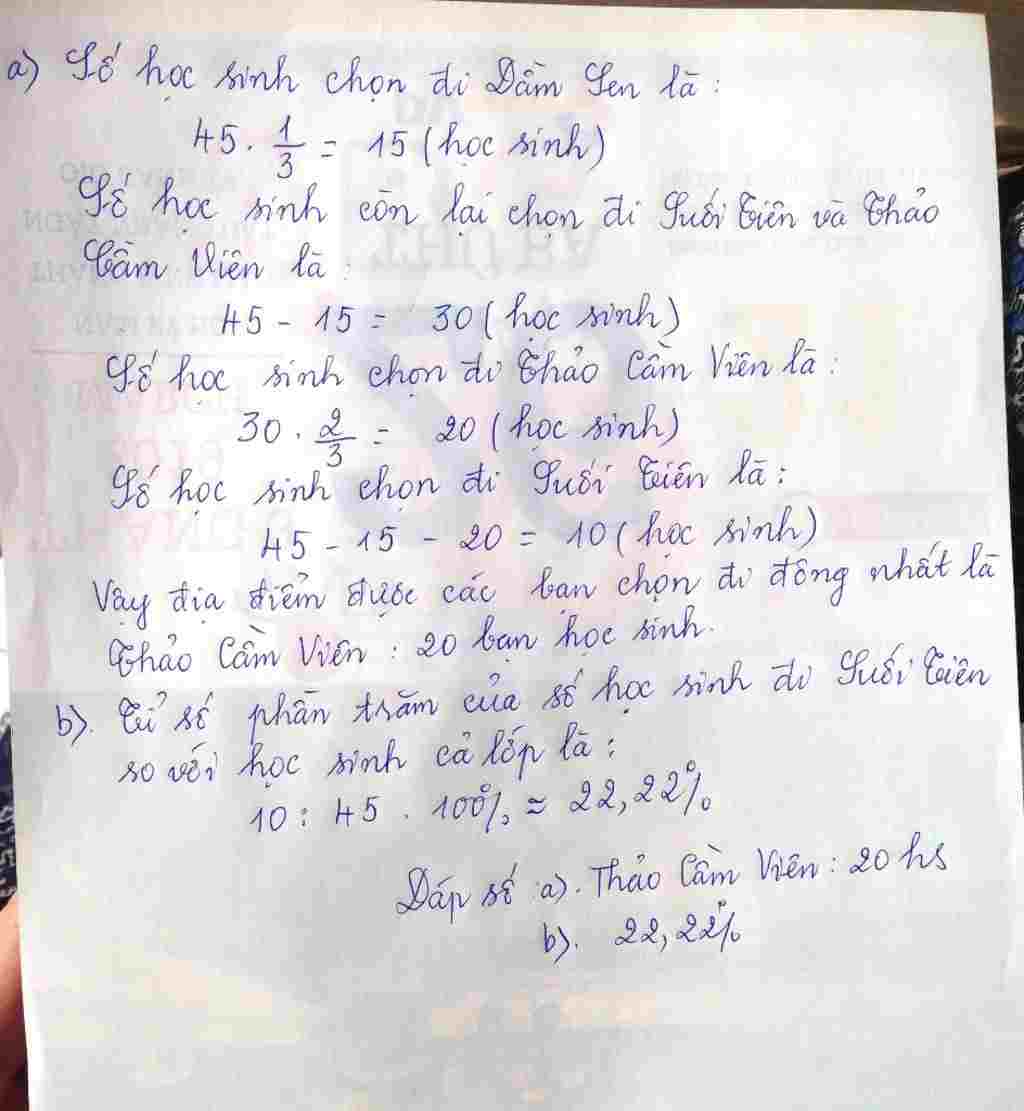 a) Số học sinh chọn đi Đầm Sen là:
45 . 1/3 = 15 (học sinh)
Số học sinh còn lại chọn đi Suối Tiên và Thảo
Cầm Viên là:
45 - 15 = 30 (học sinh)
Số học sinh chọn đi Thảo Cầm Viên là:
30 . 2/3 = 20 (học sinh)
Số học sinh chọn đi Suối Tiên là:
45 - 15 - 20 = 10 (học sinh)
Vậy địa điểm được các bạn chọn đi đông nhất là
Thảo Cầm Viên : 20 bạn học sinh.
b). Tỉ số phần trăm của số học sinh đi Suối Tiên
so với học sinh cả lớp là:
10 : 45 . 100% ≈ 22,22%
Đáp số a). Thảo Cầm Viên : 20 hs
b). 22,22%